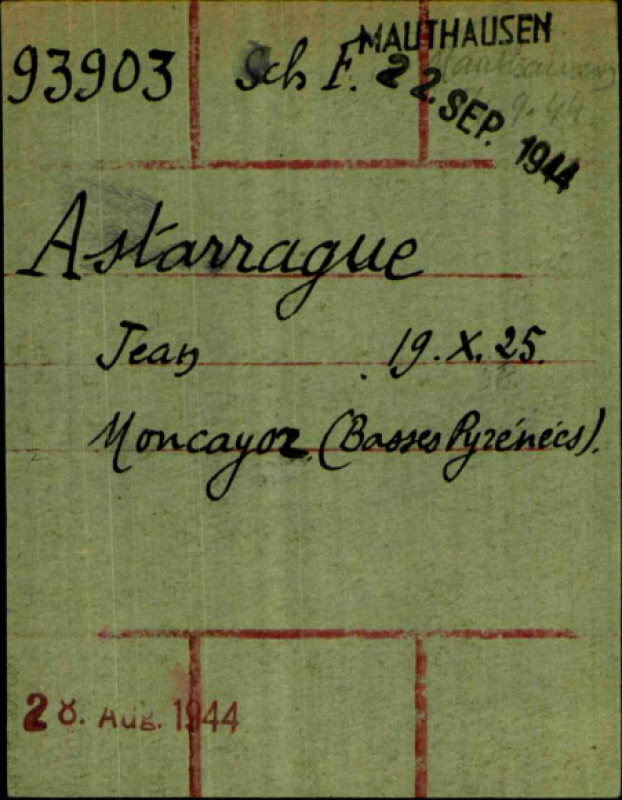 93903 Sch F. MAUTHAUSEN
22. SEP. 1944
Mauthausen
9. 44
Astarrague
Jean 19. X. 25.
Moncayoz. (Basses Pyrénées).
28. Aug. 1944